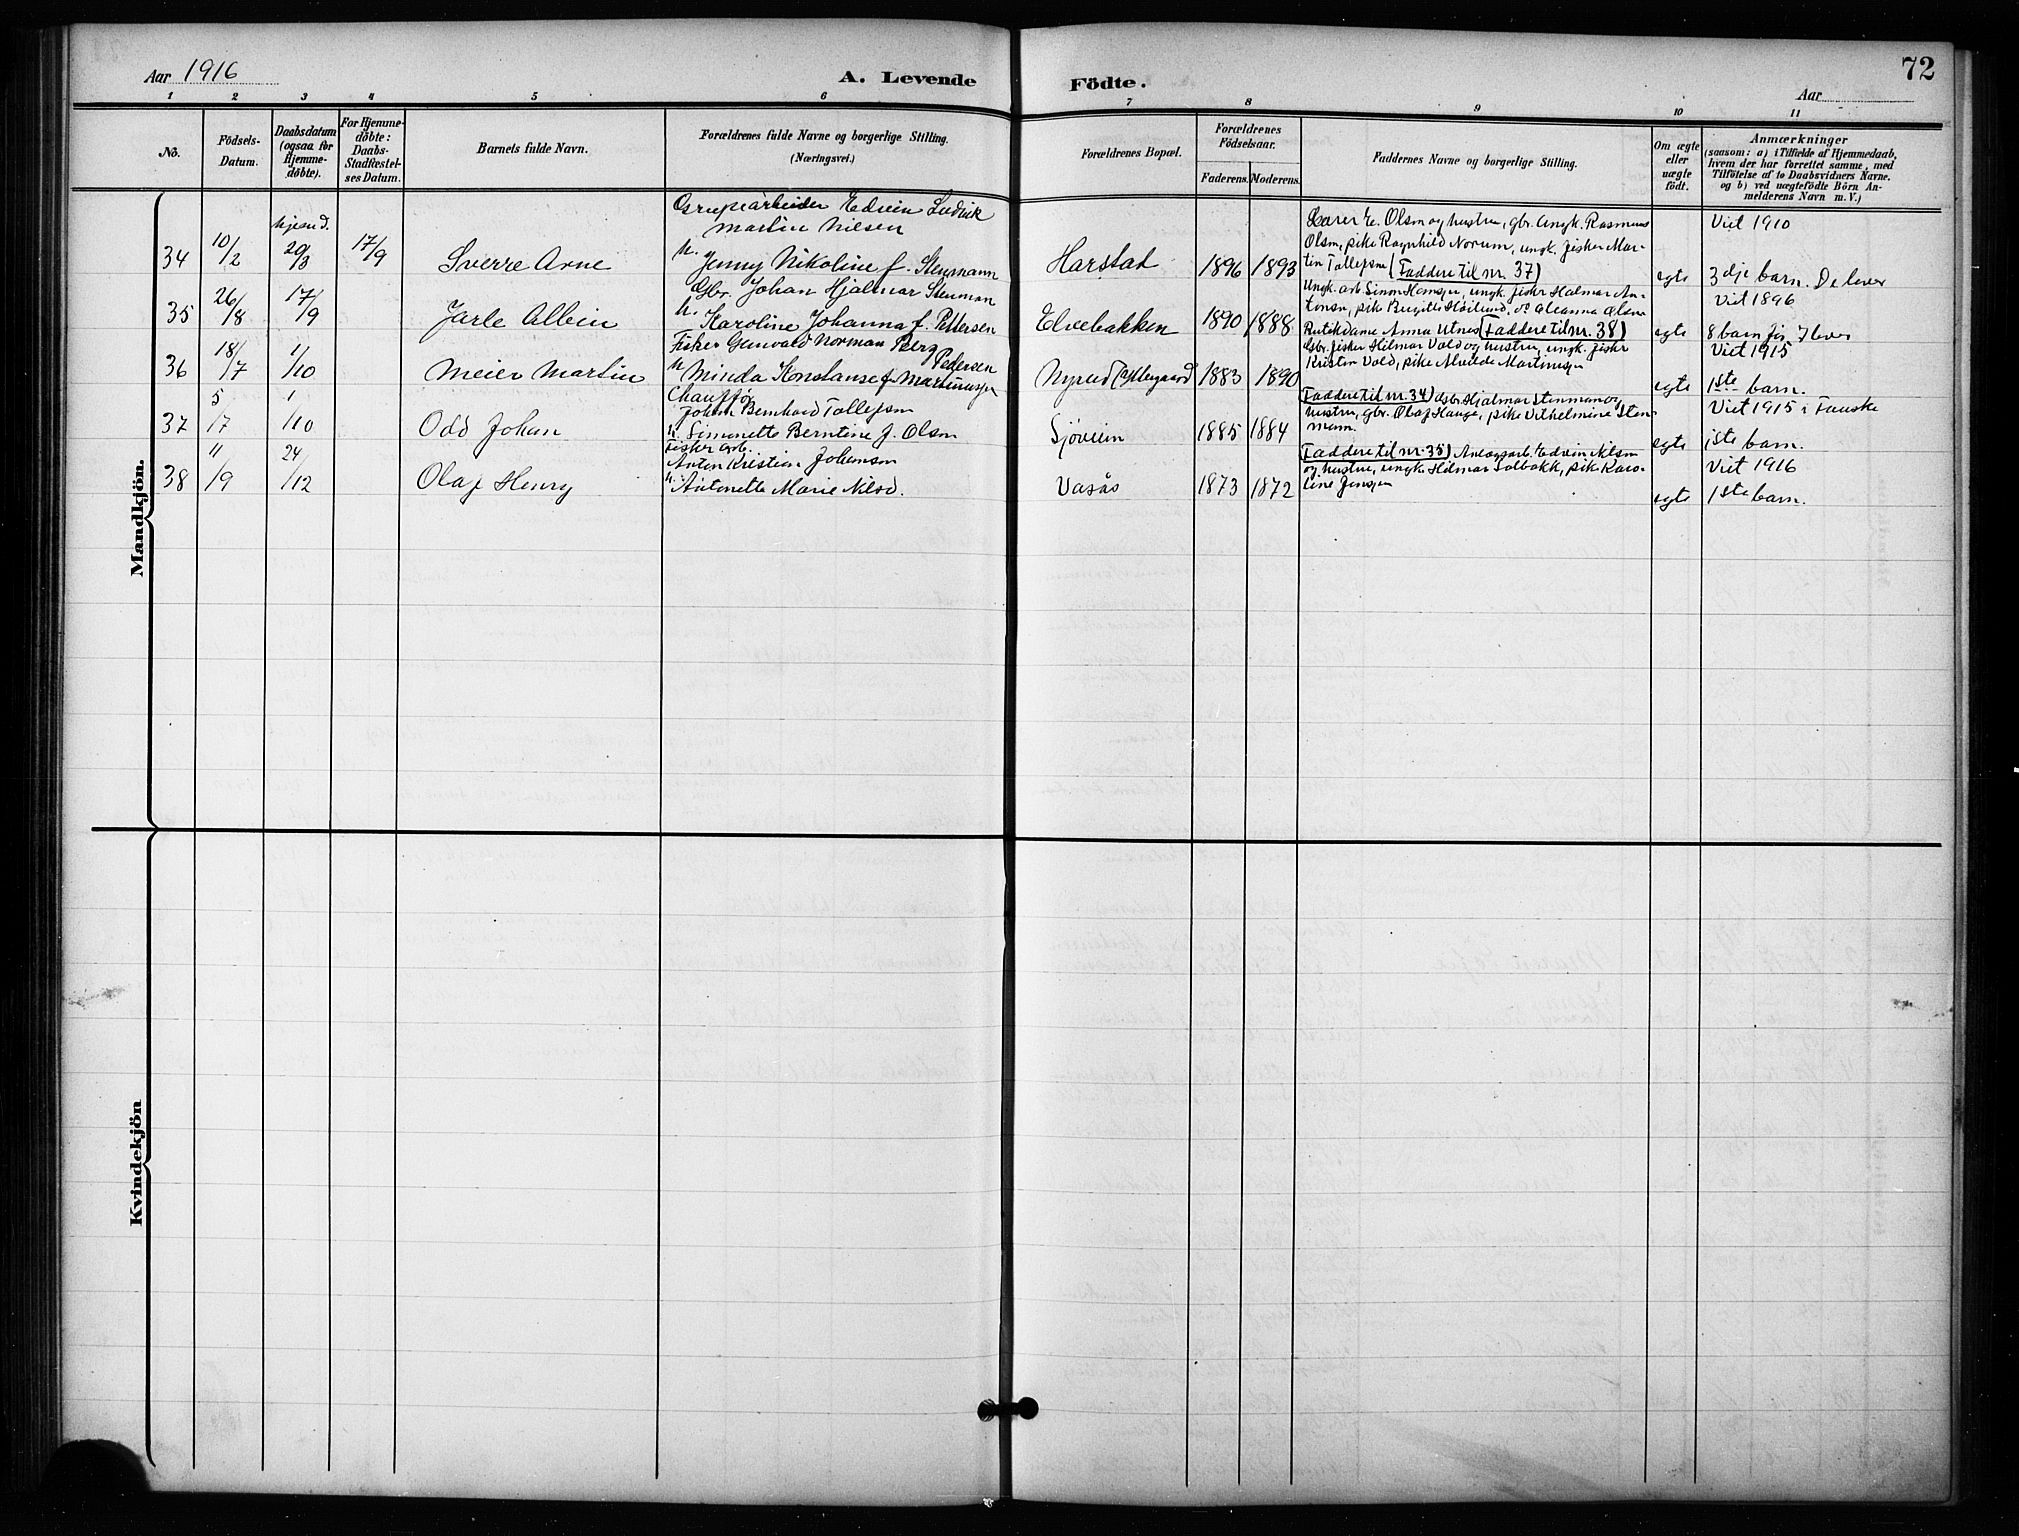 72
Aar 1916
A. Levende Födte.
Aar
1 2 3 4 5 6 7 8 9 10 11
Nô.
Födsels-
Datum.
Daabsdatum
(ogsaa for
Hjemme-
døbte).
For Hjemme-
døbte:
Daabs-
Stadfæstel-
ses Datum.
Barnets fulde Navn.
Forældrenes fulde Navne og borgerlige Stilling.
(Næringsvei.)
Forældrenes Bopæl.
Forældrenes
Födselsaar.
Faderens. Moderens.
Faddernes Navne og borgerlige Stilling.
Om ægte
eller
uægte
født.
Anmærkninger
(saasom: a) i Tilfælde af Hjemmedaab,
hvem der har forrettet samme, med
Tilföielse af to Daabsvidners Navne.
og b) ved uægtefödte Börn An-
melderens Navn m. V.)
Mandkjön.
34
10/2
hjemd.
20/3
17/9
Sverre Arne
Grupearbeider Edvin Ludvik
Martin Nilsen
h. Jenny Nikoline f. Stenmann
Harstad
1896 1893
Lærer E. Olsen og hustru, gbr. Ungk. Rasmus
Olsen, pike Ragnhild Norum, ungk. fisker Mar-
tin Tollefsen (Faddere til nr. 37)
egte
Viet 1910
3dje barn. De lever
35
26/8
17/9
Jarle Albin
Gbr. Johan Hjalmar Stenman
h. Karoline Johanna f. Pettersen
Elvebakken
1890 1888
Ungk. arb. Simon Hansen, ungk. fisker Halmar An-
tonsen, pike Bergitte Höilund, do Oleanna Olsen
Butikdame Anna Utnes (Faddere til nr. 38)
egte
Viet 1896
8 barn för. 7 lever
36
18/7
1/10
Meier Martin
Fisker Gunvald Norman Berg
Pedersen
h Minda Konstanse f. Martinussen
1883 1890
Gbr. fisker Hilmar Vold og hustru, ungk. fisker
Kristen Vold, pike Alvilde Martinussen
egte
Viet 1915
1ste barn.
37
5/7
1/10
Odd Johan
Chauffør
Johan Bernhard Tollefsen
h. Simonette Berntine f. Olsen
Sjöveien
1885 1884
(Faddere til nr. 34) Gbr. Hjalmar Stenman og
hustru, gbr. Olaf Hauge, pike Vilhelmine Sten-
mann.
egte
Viet 1915 i Fauske
1ste barn.
38
11/9
24/12
Olaf Henry
Fisker arb.
Anton Kristian Johansen
h. Antonette Marie Nilsd.
Vasås
1873 1872
(Faddere til nr. 35) Anlægsarb. Edvin Nilsen
og hustru, ungk. Hilmar Solbakk, pike Karo-
line Jensen
egte
Viet 1916
1ste barn.
Kvindekjön